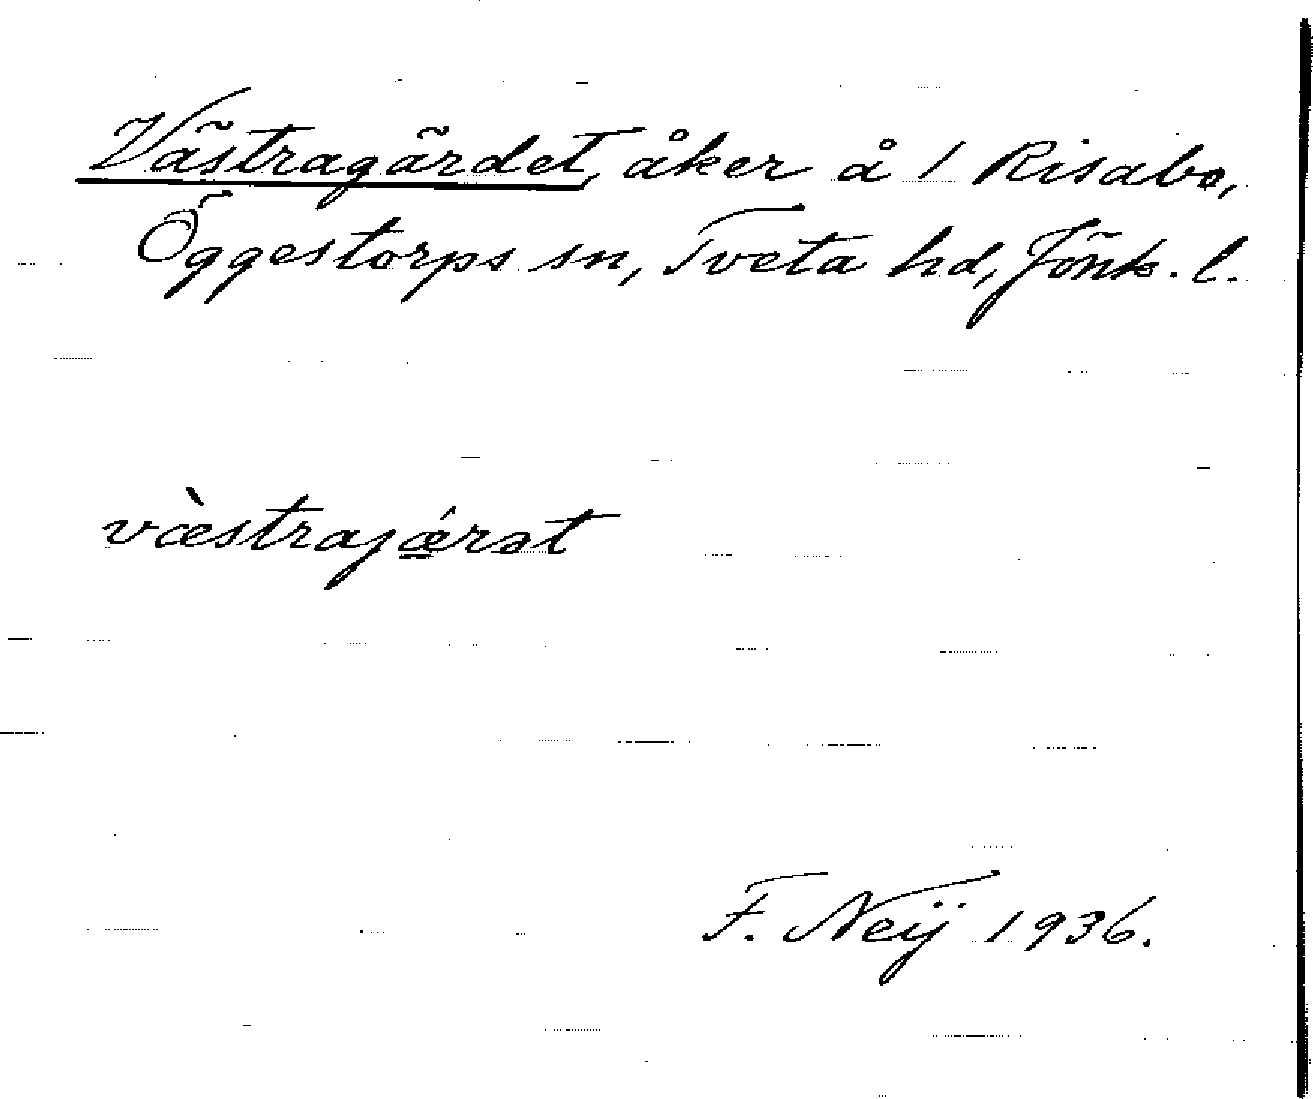 Västragärdet, åker å 1 Risabo,
Öggestorps sn, Tveta hd, Jönk. l.
vàestrajǽrət
F. Neij 1936.